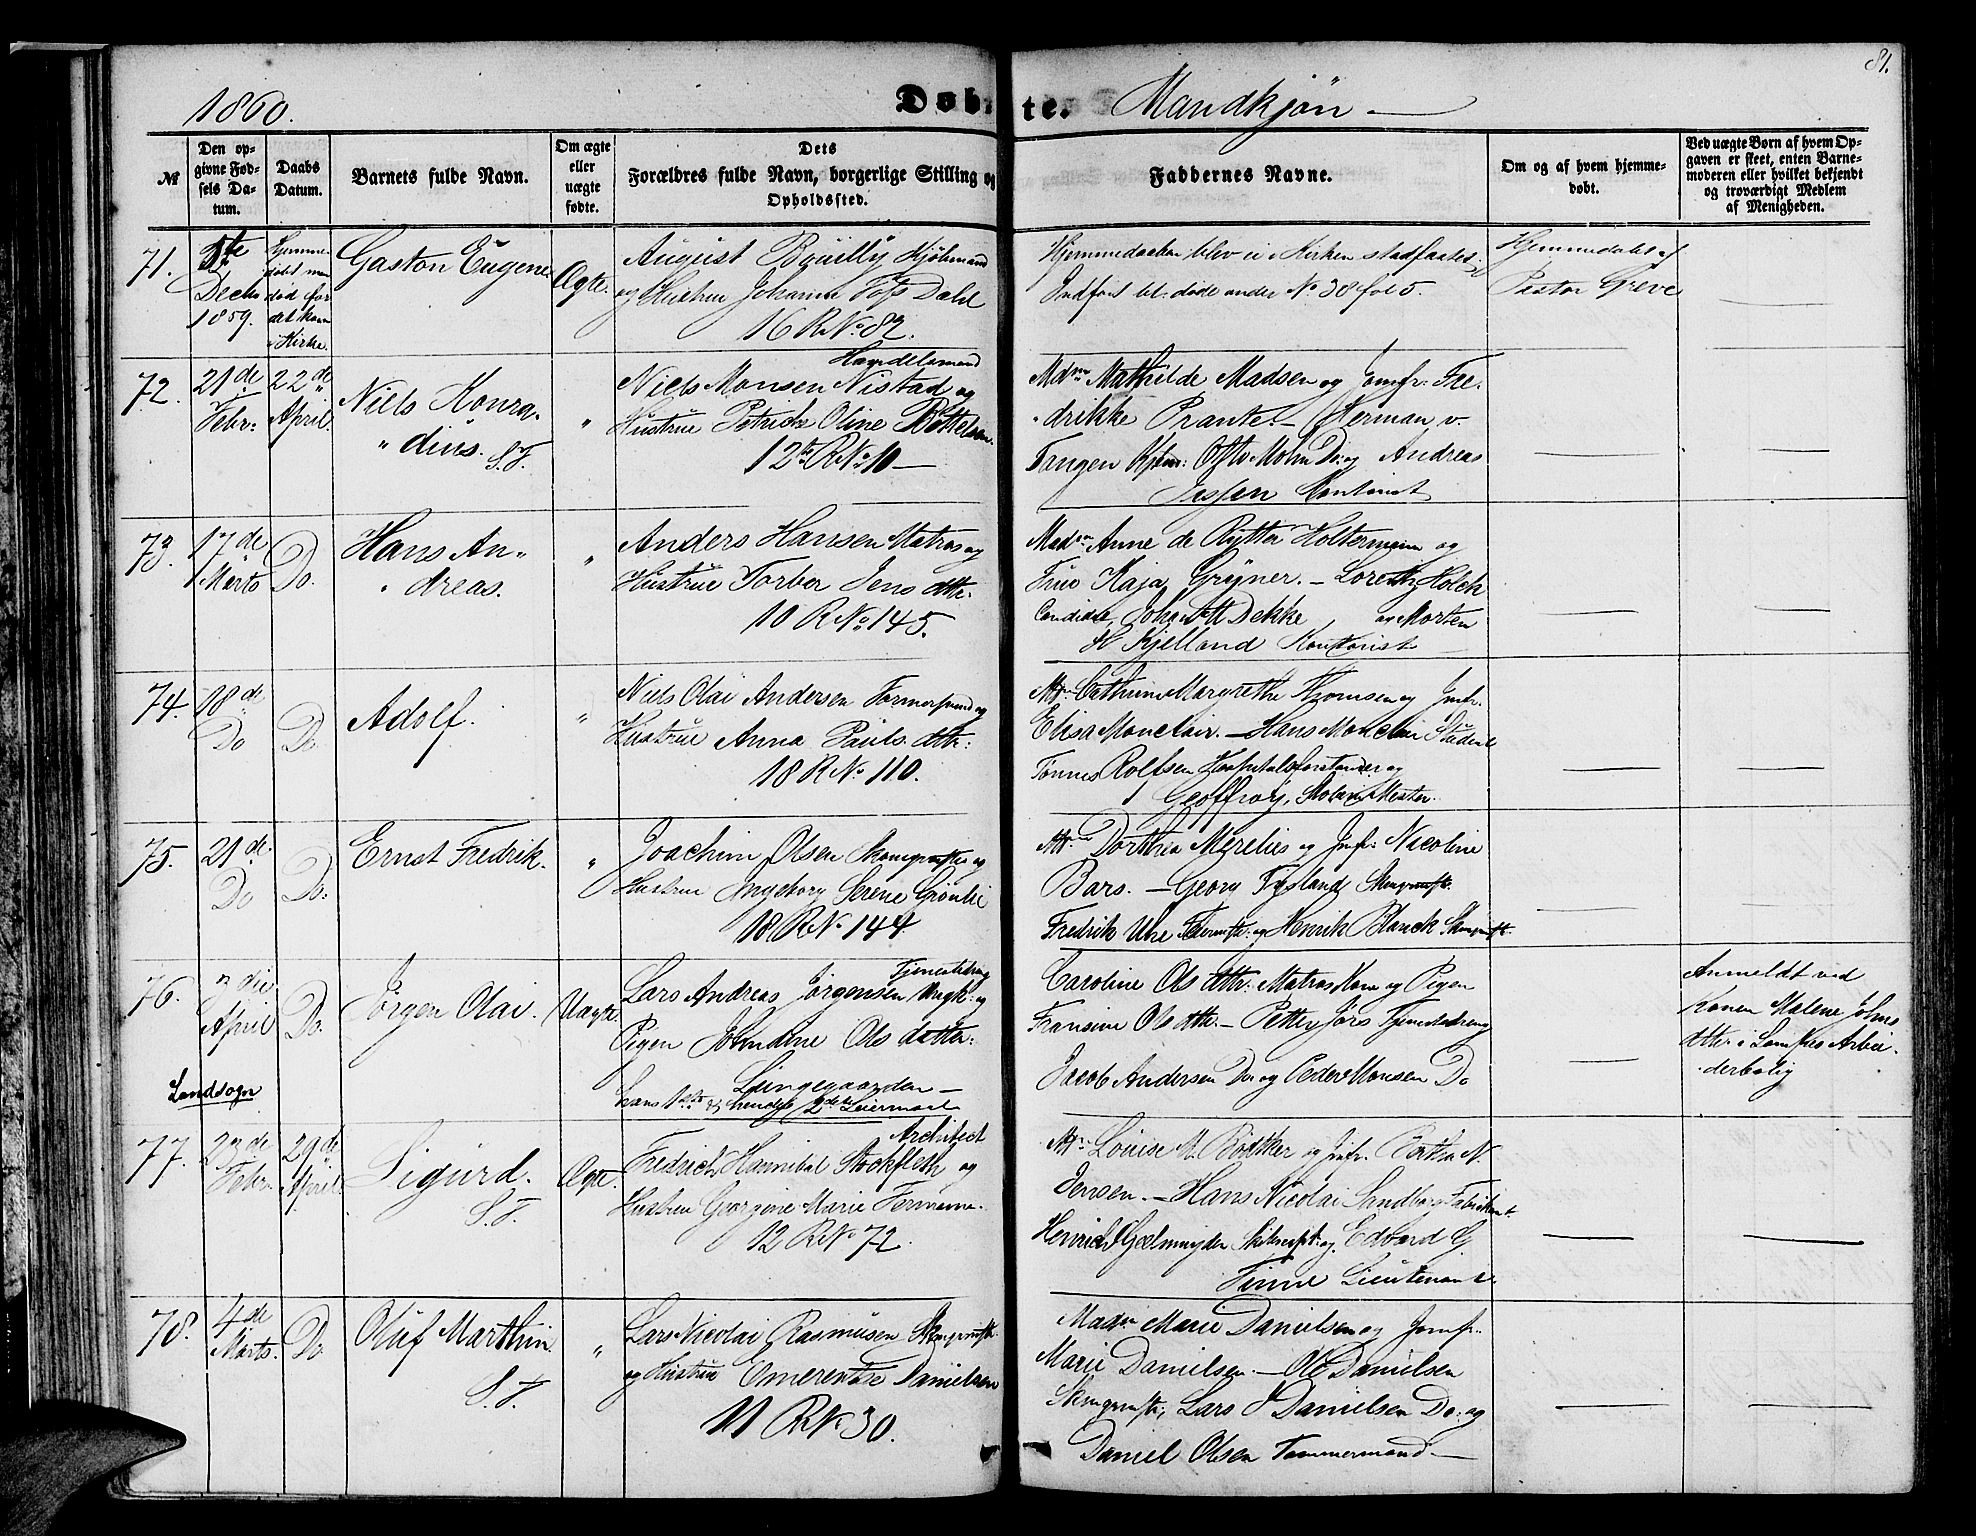 81.
1860.
Døbte. Mandkjøn
№
Den opgivne Fødsels Datum.
Daabs Datum.
Barnets fulde Navn.
Om ægte eller uægte fødte.
Dets Forældres fulde Navn, borgerlige Stilling og Opholdssted.
Faddernes Navne.
Om og af hvem hjemmedøbt.
Ved uægte Børn af hvem Opgaven er skeet, enten Barnemoderen eller hvilket bekjendt og troværdigt Medlem af Menigheden.
71.
Decbr
1859.
Hjemme
døbt men
død før
det kom
i Kirke.
Gaston Eugene
Ægte.
August Kjøbmand
og Hustrue Johanne Dahl
16 R No. 82.
Hjemmedaaben blev ei i Kirken stadfæstet
Indført bl. døde under No 38 fol 5.
Hjemmedøbt af
Pastor Greve
72.
21de
Febr.
22de
April
Niels Konra-
" dius. S.F.
"
Handelsmand
Niels Monsen Nistad og
Hustrue Petricke Oline
12te R No. 10
Mdm Mathilde Madsen og Jomfr. Fre-
drikke Prante. - Herman v.
Tangen Kjbm: Mohn Do. og Andreas
Jessen Kontorist
73.
17de
Marts
Do.
Hans An-
dreas.
"
Anders Hansen Matros og
Hustrue Torber Jens dttr.
10 R No. 145.
Madm Anne de Rytter Holtermann og
Frue Kaja Grüner. - Holck
Candidat, Dekke og Morten
H Kjelland Kontorist
74.
18de
Do
Do.
Adolf.
"
Niels Olai Andersen og
Hustrue Anna Pauls dttr:
18 R No. 110.
Md. Cathrine Margrethe Thomsen og Jmfr.
Elisa Monclair. - Hans Monclair Student
Tønnes Rolfsen Hospitalsforstander og
Geoffroy, Mester.
75.
21de
Do
Do.
Ernst Fredrik.
"
Joachim Olsen og
Hustrue Ingeborg Serene Grønlie
18 R No 144
Md. Dorthea Merelies og Jmf: Nicoline
Bars. - Georg Tysland
Fredrik og Henrik Blanck
76.
3die
April
Do.
Jørgen Olai.
Uægte.
Tjenestedreng
Lars Andreas Jørgensen Ungk: og
Pigen Olsdatter:
Lungegaarden
hans 1ste & hendes 2det Leiermaal
Caroline Ols dttr: Matros Kone og Pigen
Fransine Ols dttr. - Petter Jørs Tjenestedreng
Jacob Andersen Do. og Peder Monsen Do
Anmeldt ved
Konen Malene Johns
dttr i Arbei-
derbolig
Landsogn
77.
23de
Febr.
29de
April
Sigurd.
S.F.
Ægte.
Architect
Fredrich Hannibal Stockfleth og
Hustrue Georgine Marie
12 R No 72.
Md. Louise M. Bødtker og Jmfr. N.
Jensen. - Hans Nicolai Sundborg Fabrikant
Henrich og Edvard G
Finne Lieutenant.
78.
4de
Marts.
Do
Oluf Marthin
S.F.
"
Lars Nicolai Rasmusen
og Hustrue Emerentse Danielsen
11 R No 30.
Madm Marie Danielsen og Jomfr.
Marie Danielsen. - Ole Danielsen
Lars Danielsen Do. og
Daniel Olsen Tømmermand